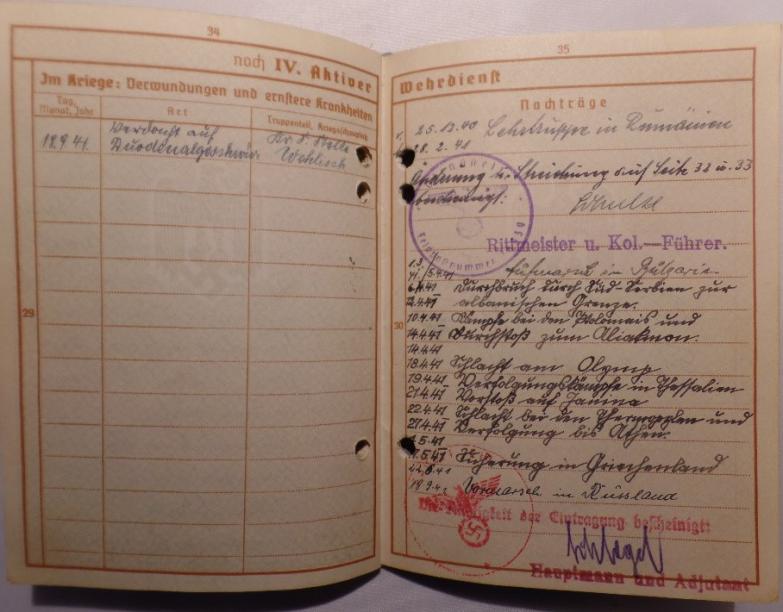 34
noch IV. Aktiver
Im Kriege: Verwundungen und ernstere Krankheiten
Tag, Monat, Jahr
Art
Truppenteil, Kriegsschauplatz
18.9.41.
Verdacht auf
Duodenalgeschwür
29
35
Wehrdienst
Nachträge
25.12.40 Lehrtruppe in Rumänien
28.2.41
Änderung u. Streichung auf Seite 32 u. 33
bescheinigt:
Schulze
Rittmeister u. Kol.—Führer.
Aufmarsch in Bulgarien
6.4.41 Durchbruch durch Süd-Serbien zur
albanischen Grenze.
10.4.41 Kämpfe bei den Ptolomais und
14.4.41 Durchstoß zum Aliakmon.
14.4.41
18.4.41 Schlacht am Olymp
19.4.41 Verfolgungskämpfe in Thessalien
21.4.41 Vorstoß auf Janina
22.4.41 Schlacht bei den Thermopylen und
27.4.41 Verfolgung bis Athen.
Sicherung in Griechenland
Vormarsch in Russland
30
Die Richtigkeit der Eintragung bescheinigt:
Hauptmann und Adjutant